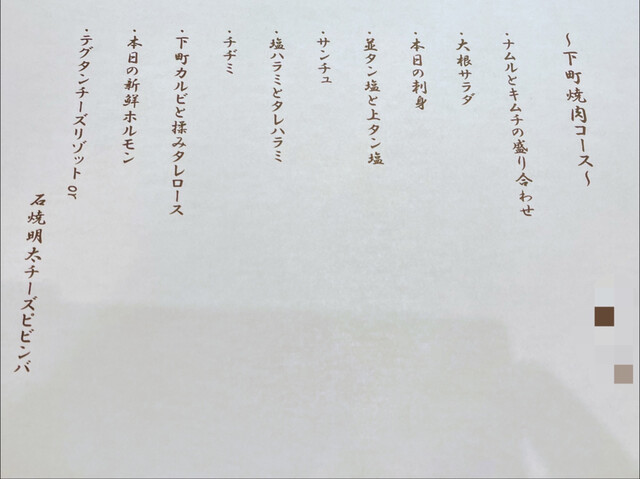 ～下町焼肉コース～
・ナムルとキムチの盛り合わせ
・大根サラダ
・本日の刺身
・並タン塩と上タン塩
・サンチュ
・塩ハラミとタレハラミ
・チヂミ
・下町カルビと揉みタレロース
・本日の新鮮ホルモン
・テグタンチーズリゾット or
石焼明太チーズビビンバ